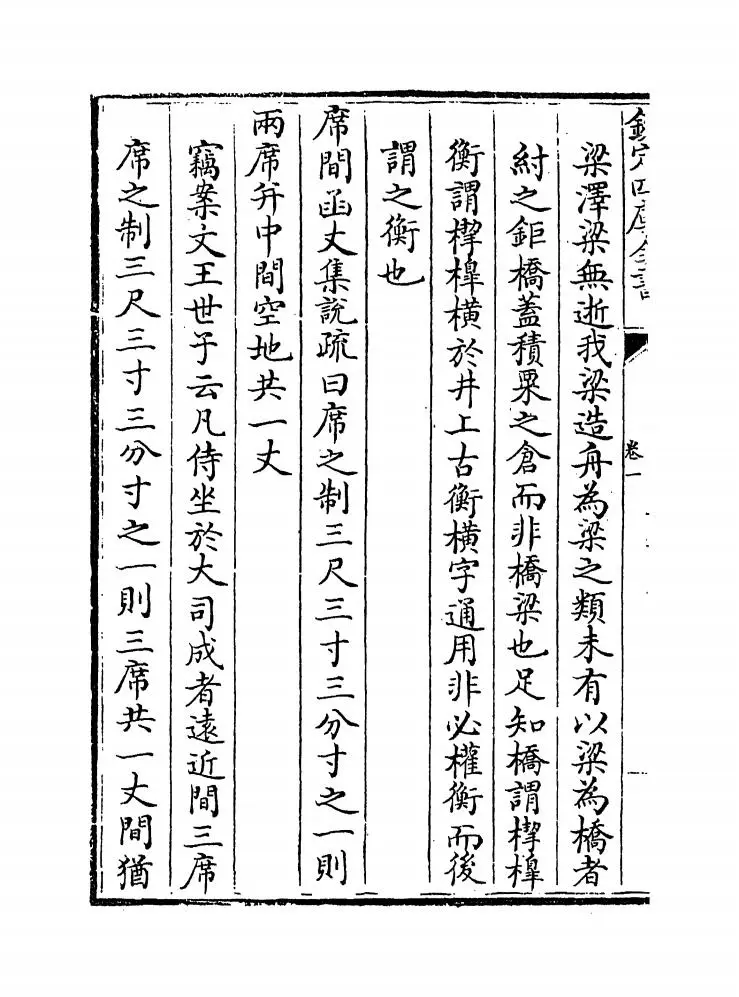 欽定四庫全書
卷一
梁澤梁無逝我梁造舟為梁之類未有以梁為橋者
紂之鉅橋蓋積粟之倉而非橋梁也足知橋謂楔槔
衡謂楔槔橫於井上古衡橫字通用非必權衡而後
謂之衡也
席間函丈集說疏曰席之制三尺三寸三分寸之一則
兩席幷中間空地共一丈
竊案文王世子云凡侍坐於大司成者遠近間三席
席之制三尺三寸三分寸之一則三席共一丈間猶